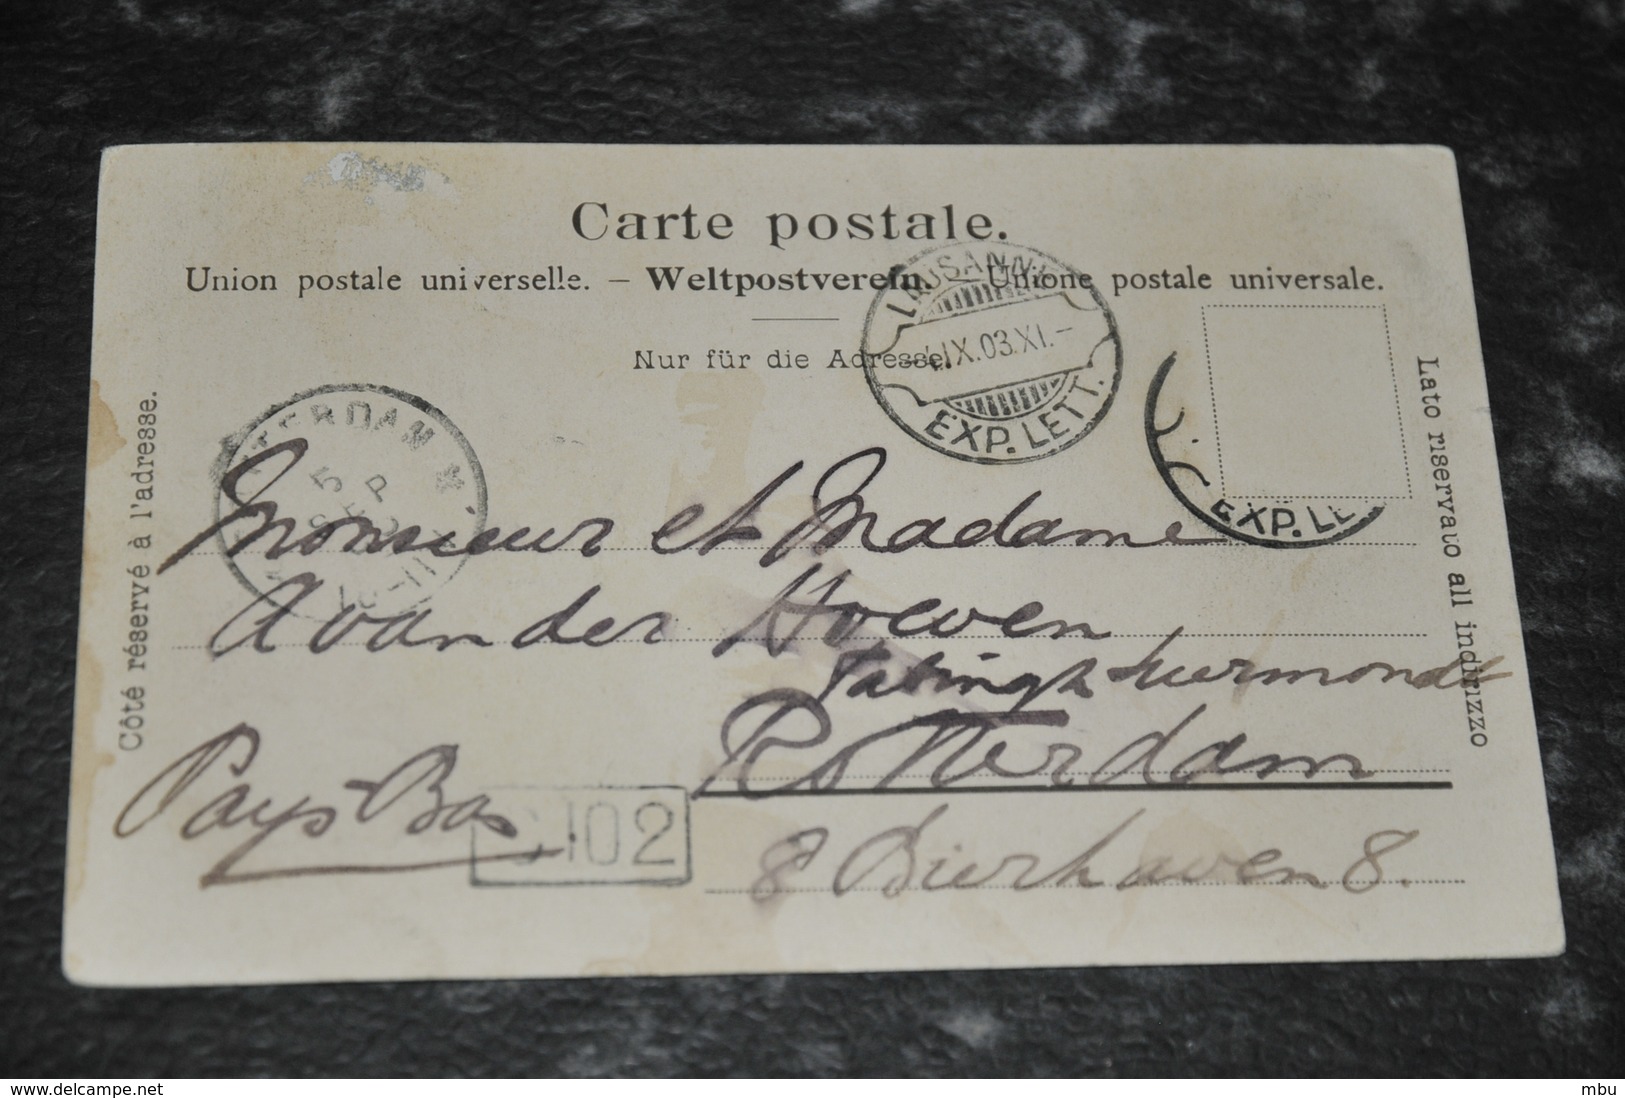 Carte postale.
Union postale universelle. – Weltpostverein. – Unione postale universale.
Nur für die Adresse.
LAUSANNE
IX.03.XI.–
EXP. LETT.
EXP. LE
TERDAM
5 P
Côté réservé à l'adresse.
Lato riservato all indirizzo
Monsieur et Madame
A van der Hoeven
Rotterdam
Pays-Bas
102
8 Bierhaven 8.
www.delcampe.net
mbu